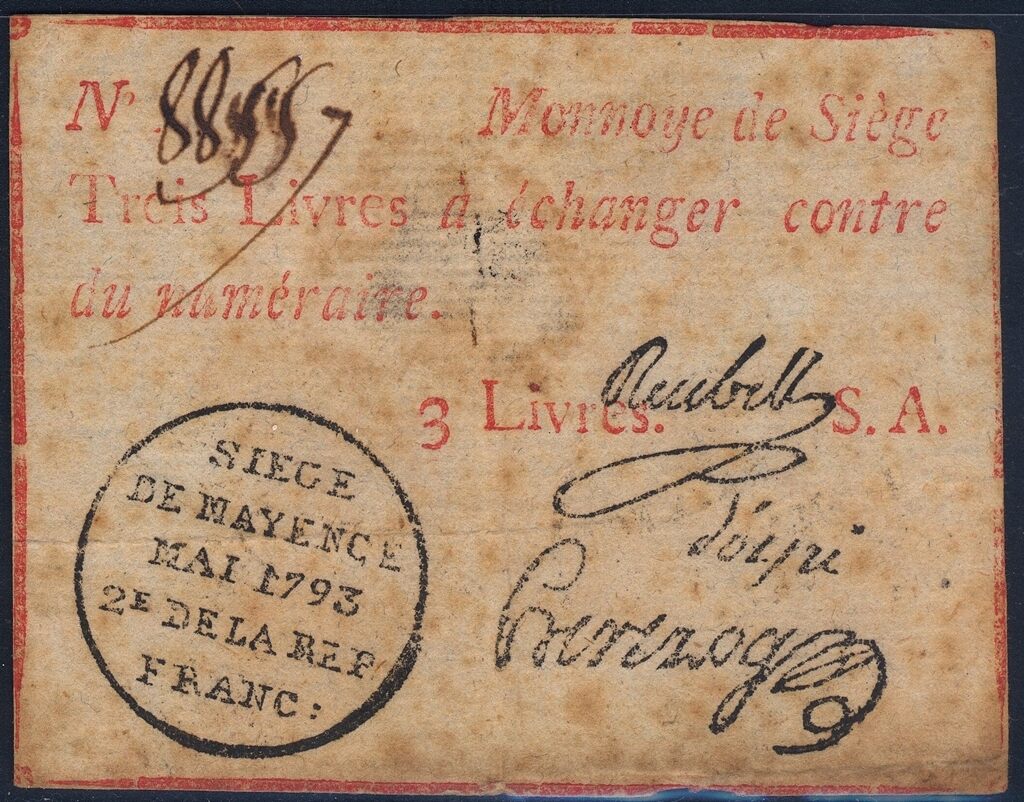 N° 8855
Monnoye de Siège
Trois Livres à échanger contre
du numéraire.
3 Livres. S. A.
Reubell
SIEGE
DE MAYENCE
MAI 1793
2E DE LA REP
FRANC: